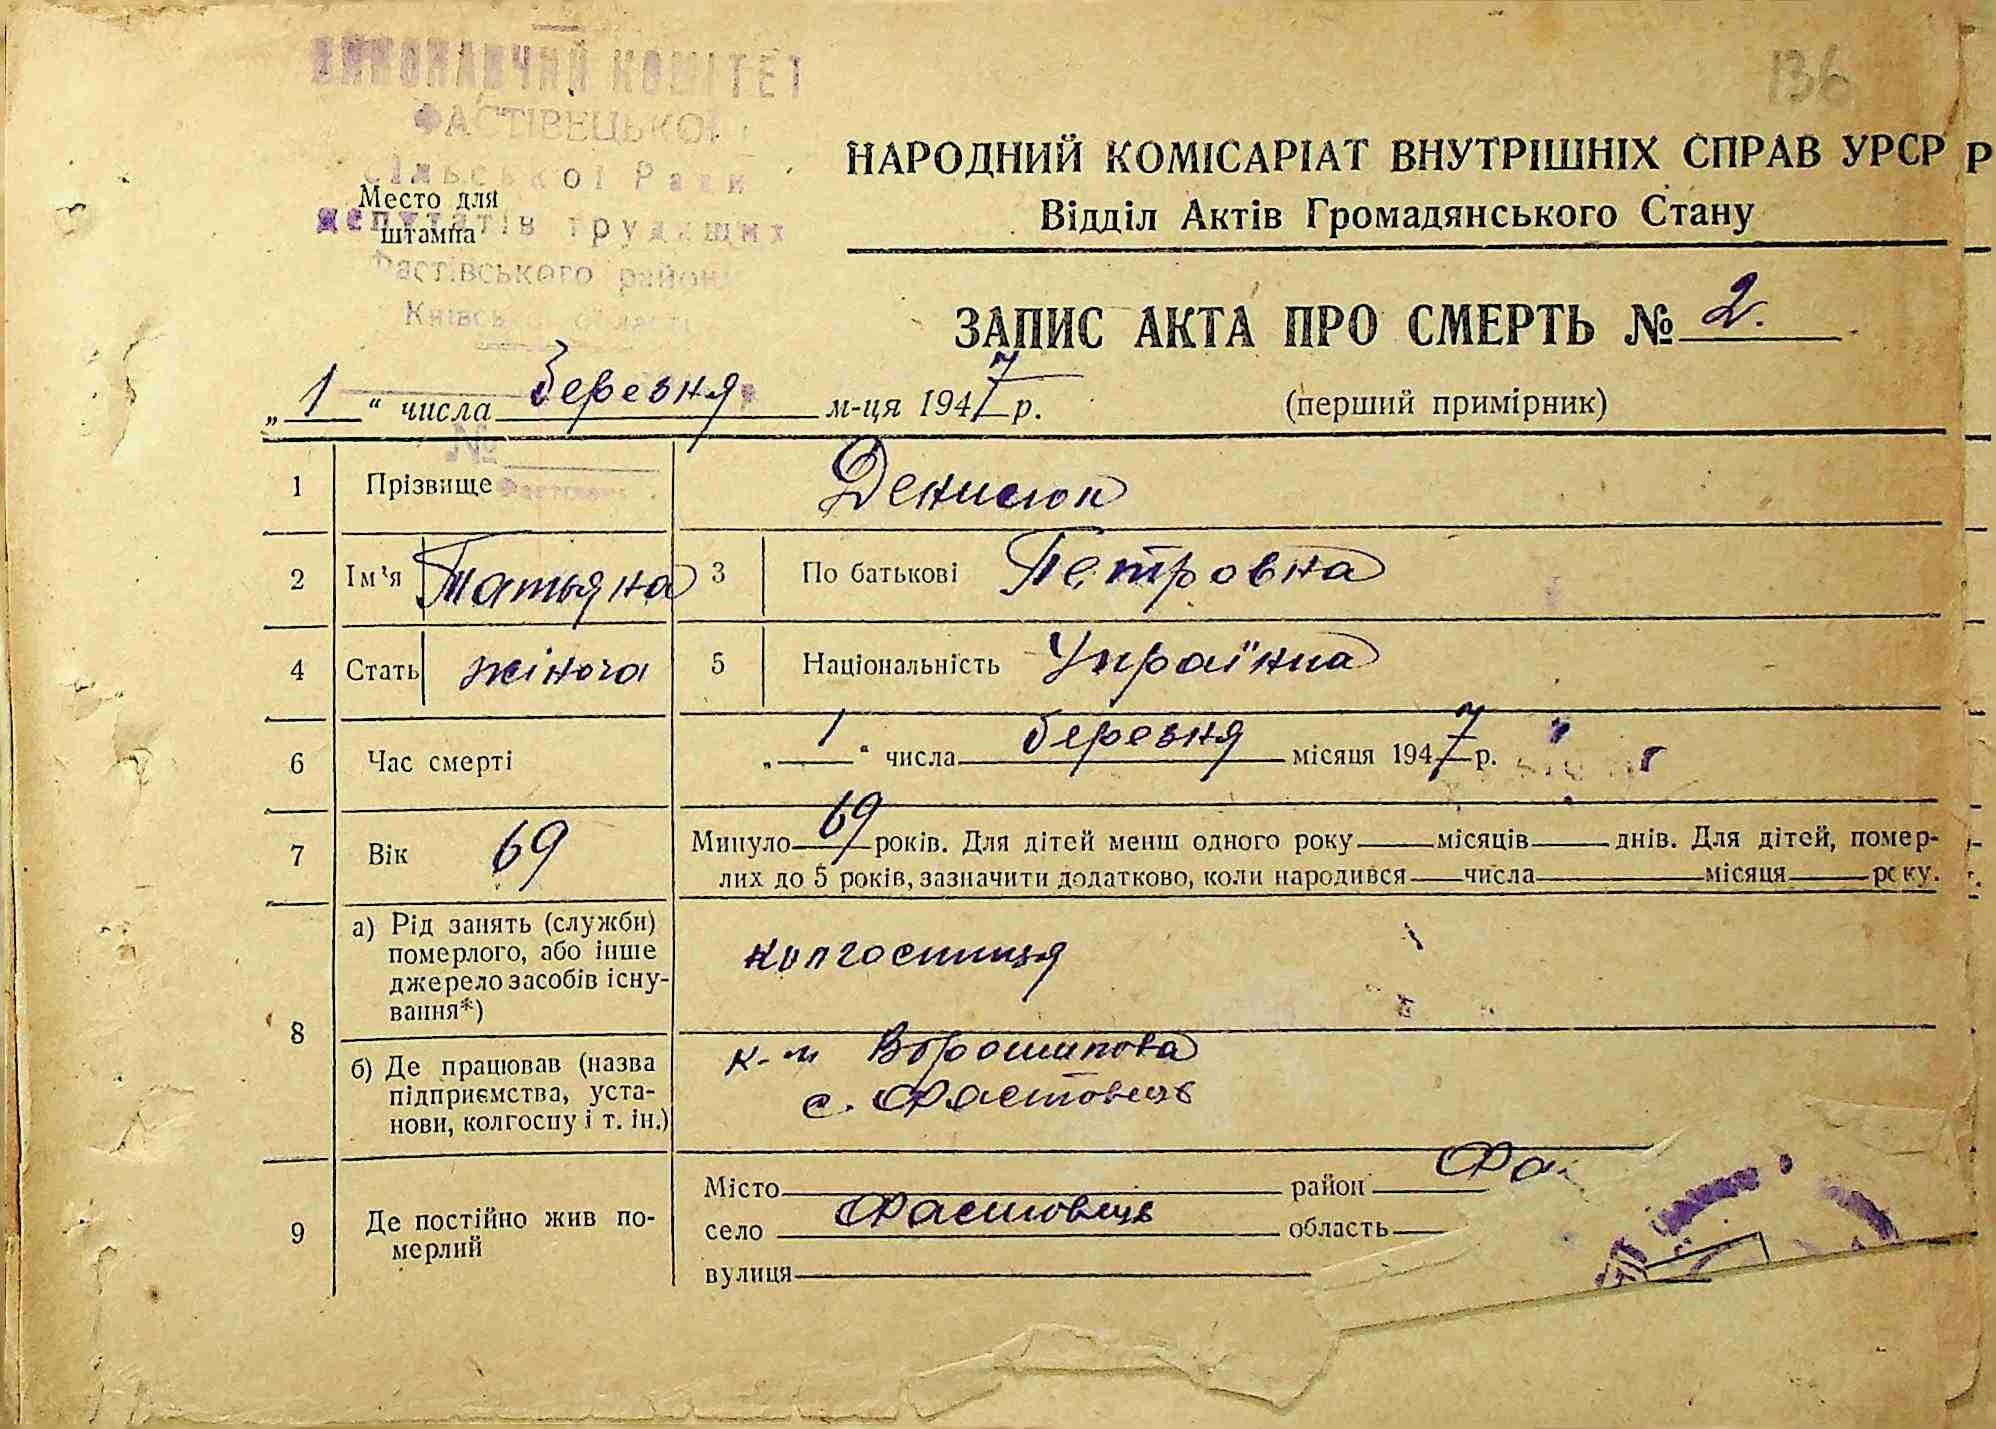 136
ВИКОНАВЧИЙ КОМІТЕТ
ФАСТІВЕЦЬКОЇ
Сільської Ради
депутатів трудящих
Фастівського району
Київської області
Место для
штампа
НАРОДНИЙ КОМІСАРІАТ ВНУТРІШНІХ СПРАВ УРСР
Відділ Актів Громадянського Стану
ЗАПИС АКТА ПРО СМЕРТЬ № 2.
„ 1 “ числа березня м-ця 1947 р. (перший примірник)
№
1 Прізвище Денисюк
2 Ім'я Татьяна 3 По батькові Петровна
4 Стать жіноча 5 Національність Українка
6 Час смерті „ 1 “ числа березня місяця 1947 р.
7 Вік 69 Минуло 69 років. Для дітей менш одного року місяців днів. Для дітей, помер-
лих до 5 років, зазначити додатково, коли народився числа місяця року.
8 а) Рід занять (служби)
померлого, або інше
джерело засобів існу-
вання*)
колгоспниця
б) Де працював (назва
підприємства, уста-
нови, колгоспу і т. ін.)
к-п Ворошилова
с. Фастовець
9 Де постійно жив по-
мерлий
Місто район Фа
село Фастовець область
вулиця